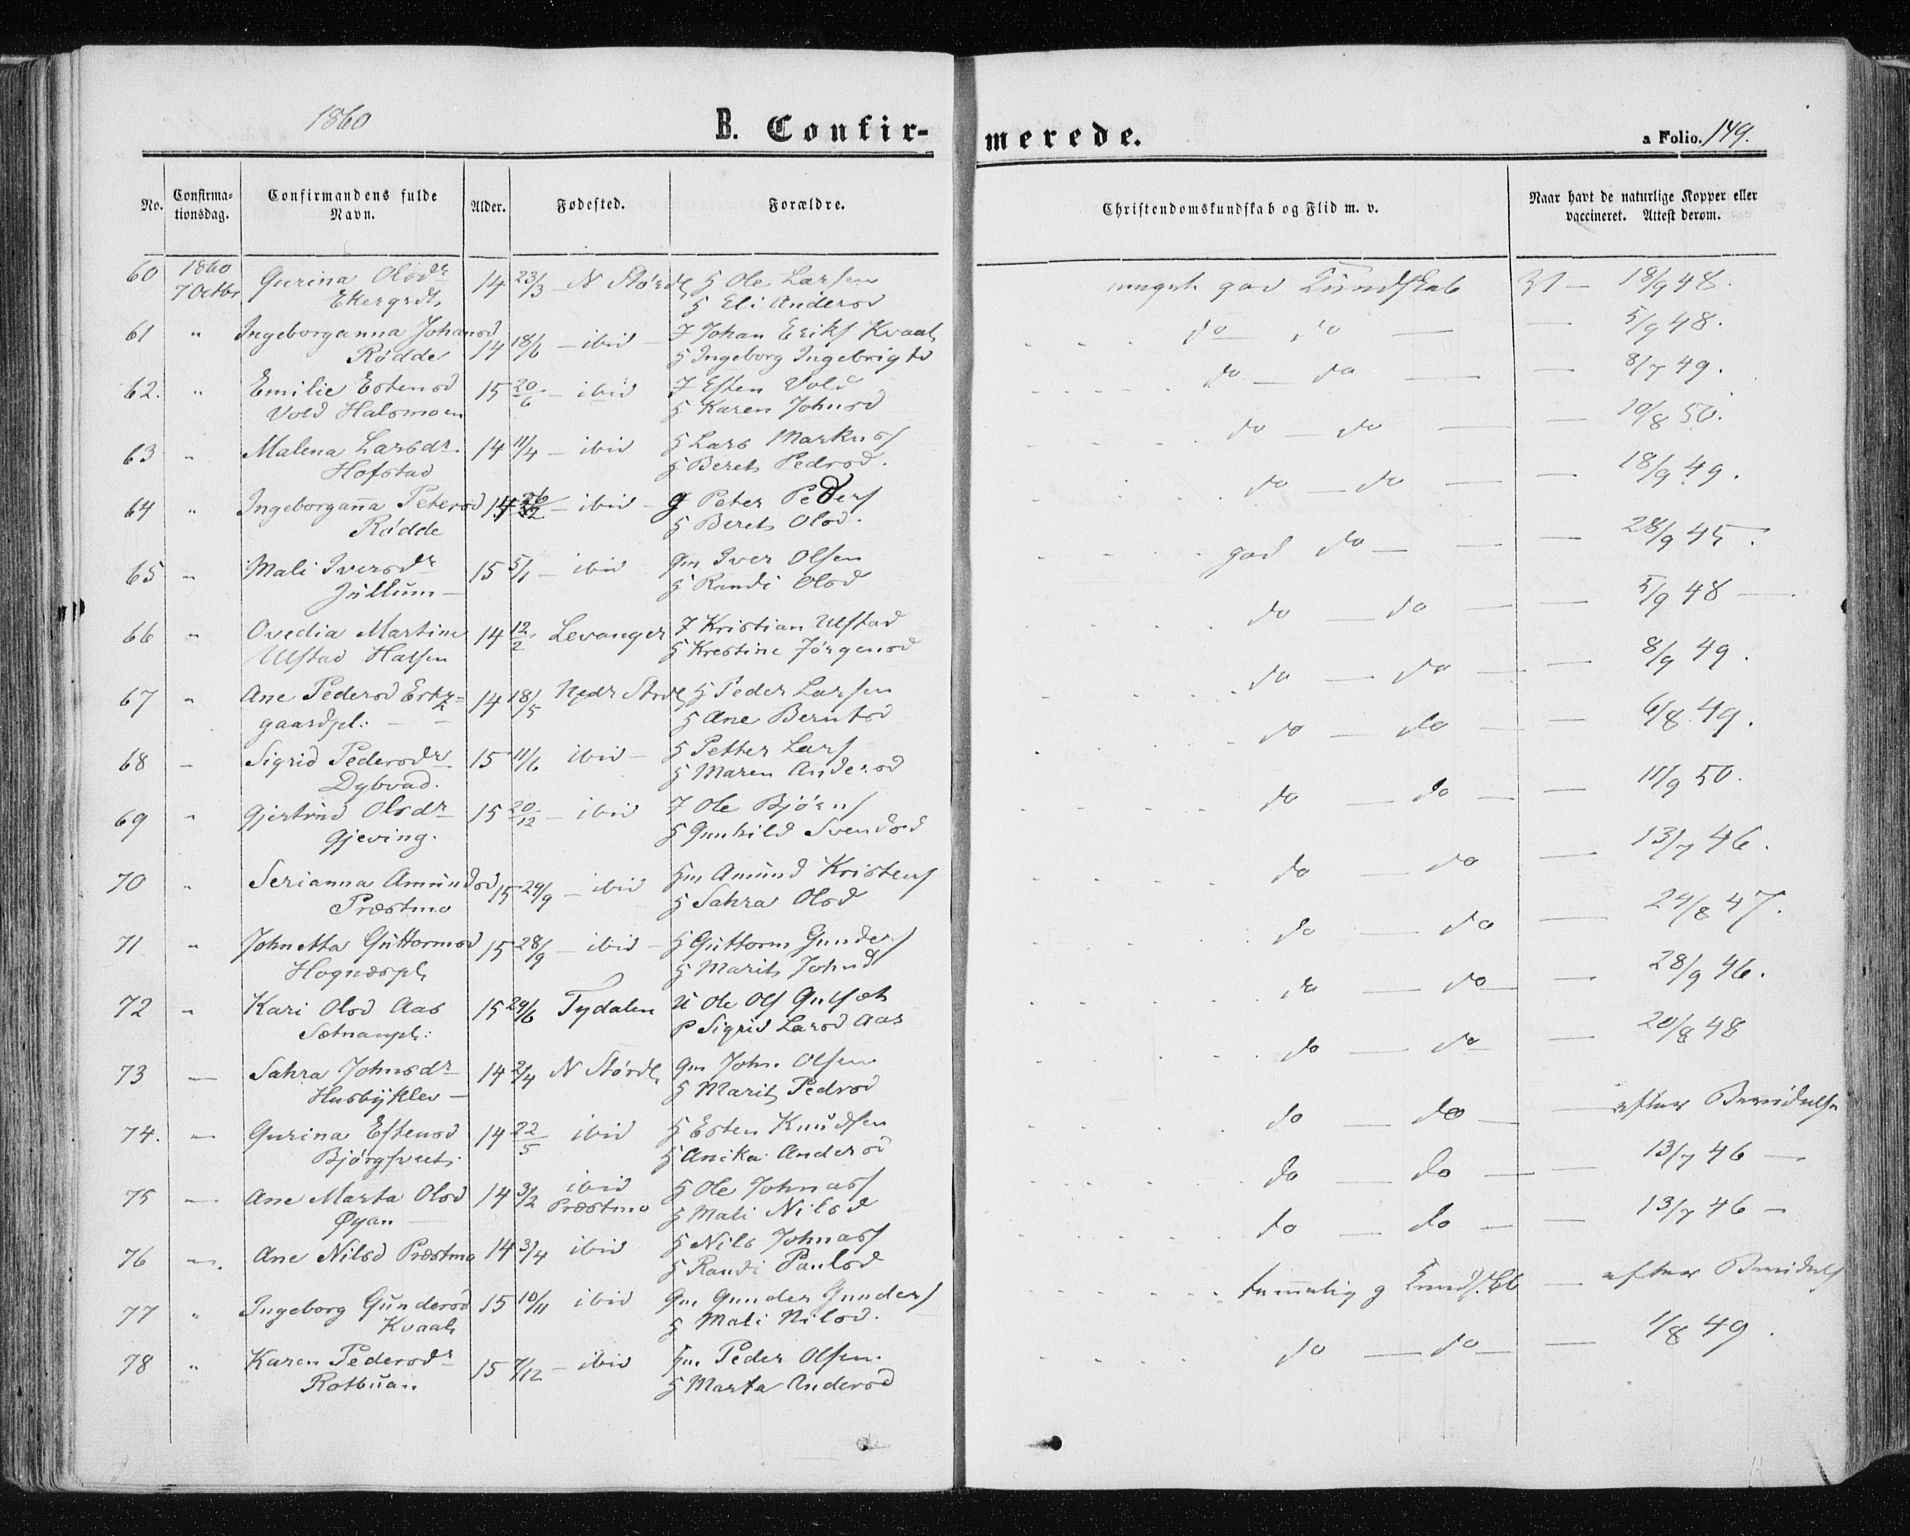 1860
B. Confir-
merede.
a Folio. 149.
No.
Confirma-
tionsdag.
Confirmandens fulde
Navn.
Alder.
Fødested.
Forældre.
Christendomskundskab og Flid m. v.
Naar havt de naturlige Kopper eller
vaccineret. Attest derom.
60 1860 Gurina Olsdr 14 23/3 - N Størdl Ole Larsen meget god Kundskab 18/9 48.
7 Octbr Ekergrdl Eli Andersd
61 " Ingeborganna Johansd 14 18/6 - ibid - Johan Eriks Kvaal do do — — 5/9 48.
Rødde Ingeborg Ingebrigtd
62. " Emilie Estensd 15 20/6 - ibid Esten Vold do — do — — 8/7 49.
Vold Halsmoen Karen Johnsd
63 " Malena Larsdr. 14 11/4 - ibid Lars Markuss do — do — — 10/8 50.
Hofstad Beret Pedrsd.
64 " Ingeborgaña Petersd 14 - ibid - Peter Peders do — do — — 18/9 49.
Rødde Beret Olsd.
65 " Mali Iversdr 15 5/1 - ibid gm Iver Olsen god do — — — 28/9 45.
Jullum — Randi Olsd
66 " Ovedia Martine 14 12/2 Levanger Kristian Ulstad do — do — — 5/9 48 —
Ulstad Halsen Krestine Jörgensd
67 " Ane Pedersd 14 18/5 Nedr Strdl Peder Larsen do — do — — 8/9 49.
gaardpl: — — Ane Berntsd
68 — Sigrid Pedersdr. 15 11/6 ibid — Petter Lars do — do — — 6/8 49.
Dybvad. Maren Andersd
69 " Gjertrud Olsdr 15 20/12 - ibid Ole Bjørns do — do — — 11/9 50.
Gjeving. Gunhild Svendsd
70 " Serianna Amundsd 15 29/9 - ibid Amund Kristens do — do — 13/7 46.
Præstmo Sahra Olsd
71 " Johnetta Guttormsd 15 28/9 - ibid - Guttorm Gunders do — do — 24/8 47.
Hognæspl Marit Johnsd
72 " Kari Olsd Aas 15 29/6 Tydalen U Ole Ols do — do — — 28/9 46.
Sætnanpl: P Sigrid Larsd Aas
73 — Sahra Johnsdr 14 2/4 N Størdl gm John Olsen do — do — — 20/8 48
Husbyklev — Marit Pedrsd
74. — Gurina Estensd 14 22/5 ibid Esten Knudsen do — do — — efter
Anika Andersd
75 — Ane Marta Olsd 14 3/2 ibid Ole Johnass do — do — — 13/7 46 —
Øyan — Præstmo Mali Nilsd
76 — Ane Nilsd Præstmo 14 3/4 ibid Nils Johnass do — do — — 13/7 46 —
Randi Paulsd
77 " Ingeborg Gundersd 15 10/11 ibid gm Gunder Gunders temmelig g Kundskb — efter
Kvaal Mali Nilsd.
78 " Karen Pedersdr 15 7/12 - ibid Peder Olsen. do — do — — 1/8 49.
Rotbuan. Marta Andersd